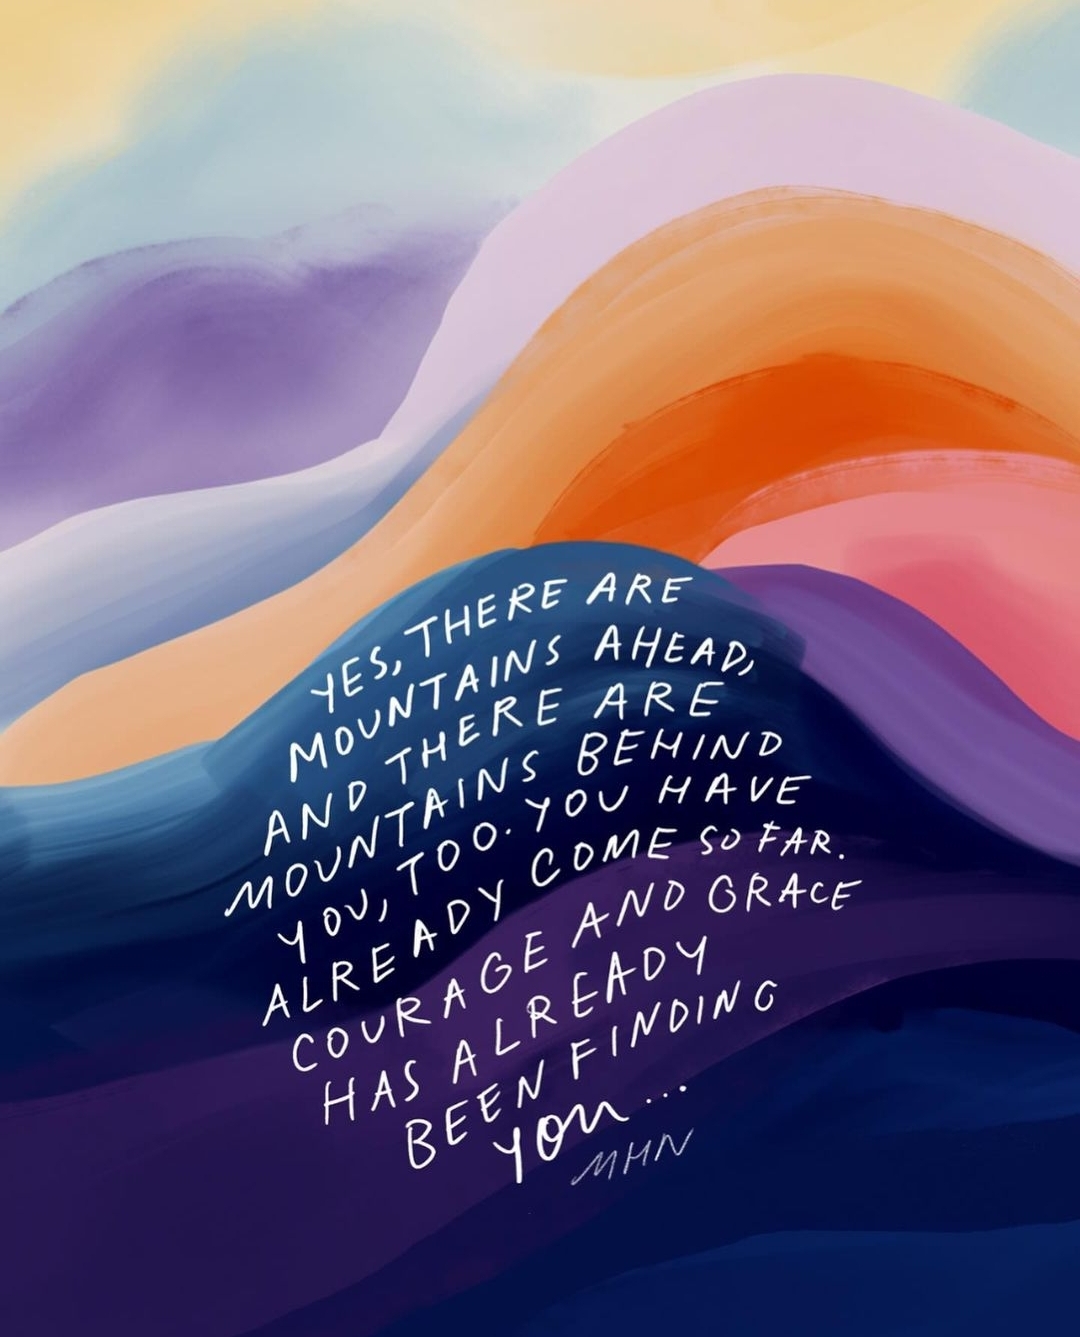 YES, THERE ARE
MOUNTAINS AHEAD,
AND THERE ARE
MOUNTAINS BEHIND
YOU, TOO. YOU HAVE
ALREADY COME SO FAR.
COURAGE AND GRACE
HAS ALREADY
BEEN FINDING
you...
MHN